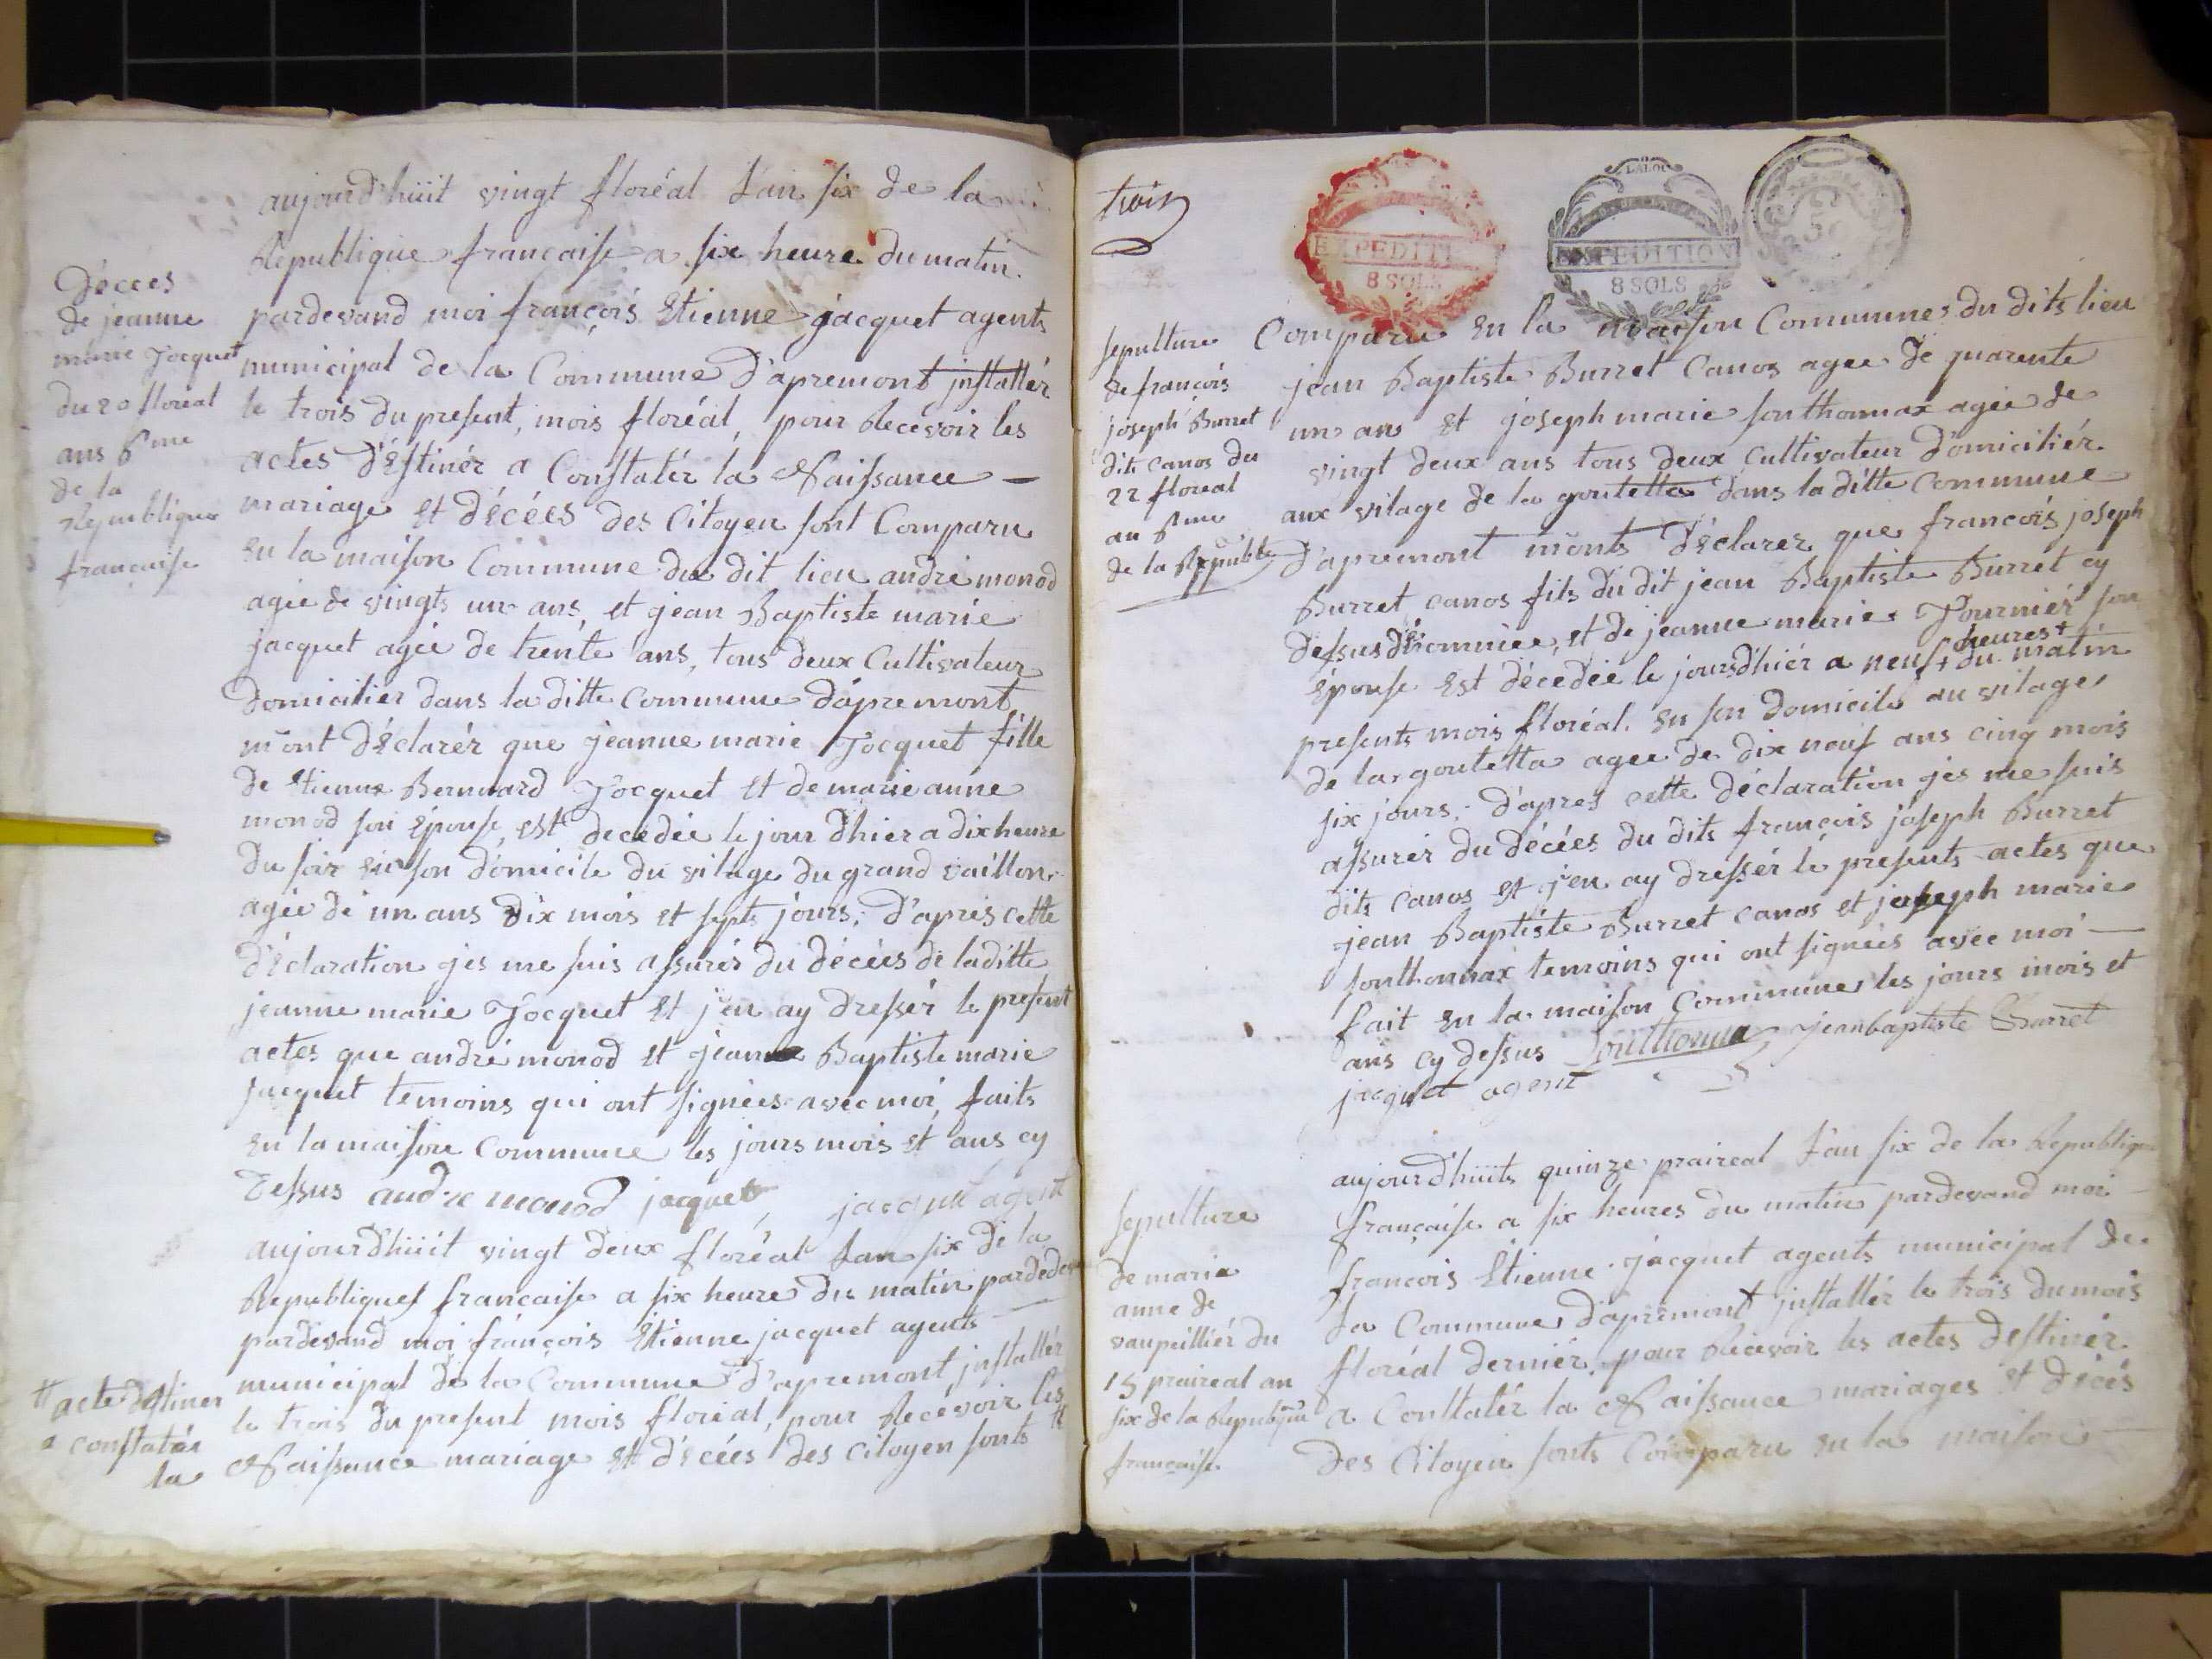 aujourd'huit vingt floréal l'an six de la
Republique française a six heure du matin.
Décces
de jeanne
marie Jocquet
du 20 floréal
ans 6me
de la
Republique
française
pardevand moi françois Etienne jacquet agents
municipal de la Commune d'apremont jnstallér
le trois du present, mois floréal, pour Recévoir les
actes d'Estinér a Constatér la Naissance —
mariage et décées des Citoyen sont Comparu
en la maison Commune du dit lieu andré monod
agée de vingts un ans, et jean Baptiste marie
jacquet agée de trente ans, tous deux Cultivateur
Domicilier dans la ditte Commune d'apremont
m'ont déclarér que jeanne marie Jocquet fille
de Etienne Bernnard Jocquet et de marie anne
monod son épouse, est décédée le jour d'hier a dix heure
du soir en son domicile du vilage du grand vaillon
agée de un ans dix mois et septs jours; d'aprés cette
déclaration jes me suis assurér du décées de laditte
jeanne marie Jocquet et j'en ay dressér le present
actes que andré monod et jean Baptiste marie
jacquet temoins qui ont signées avec moi, faits
en la maison Commune les jours mois et ans cy
dessus andre monod jacquet jacquet agent
aujourd'huit vingt deux floréal l'an six de la
Republiques française a six heure du matin
pardevand moi françois Etienne jacquet agents
municipal de la Commune d'apremont jnstallér
le trois du present mois floréal, pour Recévoir les
Naissance mariage et décées des Citoyen sonts #
# acte destiner
a constatér
la
trois
EXPEDITION
8 SOLS
EXPEDITION
8 SOLS
sepulture
de françois
joseph Burret
dits canos du
22 floreal
an 6me
de la Republi
Comparu en la maison Communes du dits lieu
jean Baptiste Burret Canos agée de quarente
un ans et joseph marie sonthonnax agée de
vingt deux ans tous deux Cultivateur domiciliér
aux vilage de la goutetta dans la ditte Commune
d'apremont m'onts déclarer que françois joseph
Burret canos fils du dit jean Baptiste Burret cy
dessus dénommée, et de jeanne marie Tourniér son
épouse est décedée le jours d'hiér a neuf + heures + du matin
presents mois floréal. en son domicile au vilage
de la goutetta agée de dix neuf ans cinq mois
six jours; d'apres cette déclaration jes me suis
assurér du décées du dits françois joseph Burret
dits canos et j'en ay dressér le presents actes que
jean Baptiste Burret canos et joseph marie
sonthonnax temoins qui ont signées avec moi —
fait en la maison Commune les jours mois et
ans cy dessus Sonthonnax jeanbaptiste Burret
jacquet agent
sepulture
de marie
anne de
vaupeilliér du
15 praireal an
six de la Republique
française
aujourd'huits quinze praireal l'an six de la Republique
française a six heures du matin pardevand moi
françois Etienne jacquet agents municipal de
la Commune d'apremont jnstallér le trois du mois
floréal dernier, pour Récevoir les actes destinér
a Constatér la Naissance mariages et décés
des Citoyen sonts Comparu en la maison